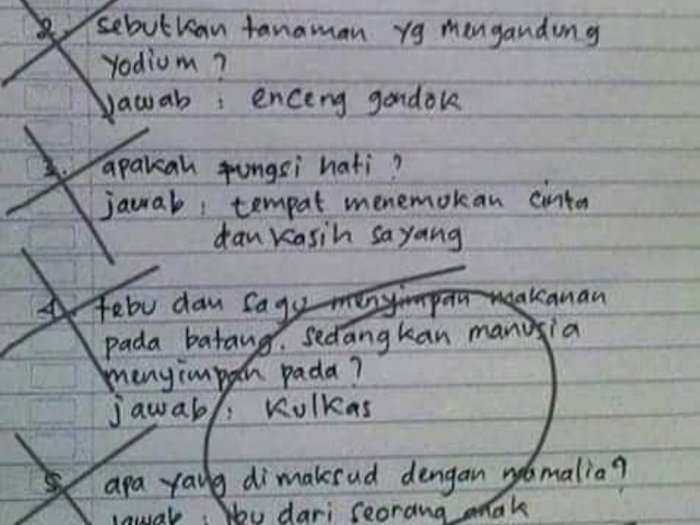 2. sebutkan tanaman yg mengandung
yodium ?
jawab : enceng gondok
3. apakah fungsi hati ?
jawab : tempat menemukan cinta
dan kasih sayang
4. tebu dan sagu menyimpan makanan
pada batang. sedangkan manusia
menyimpan pada ?
jawab : kulkas
5. apa yang di maksud dengan mamalia ?
jawab : ibu dari seorang anak